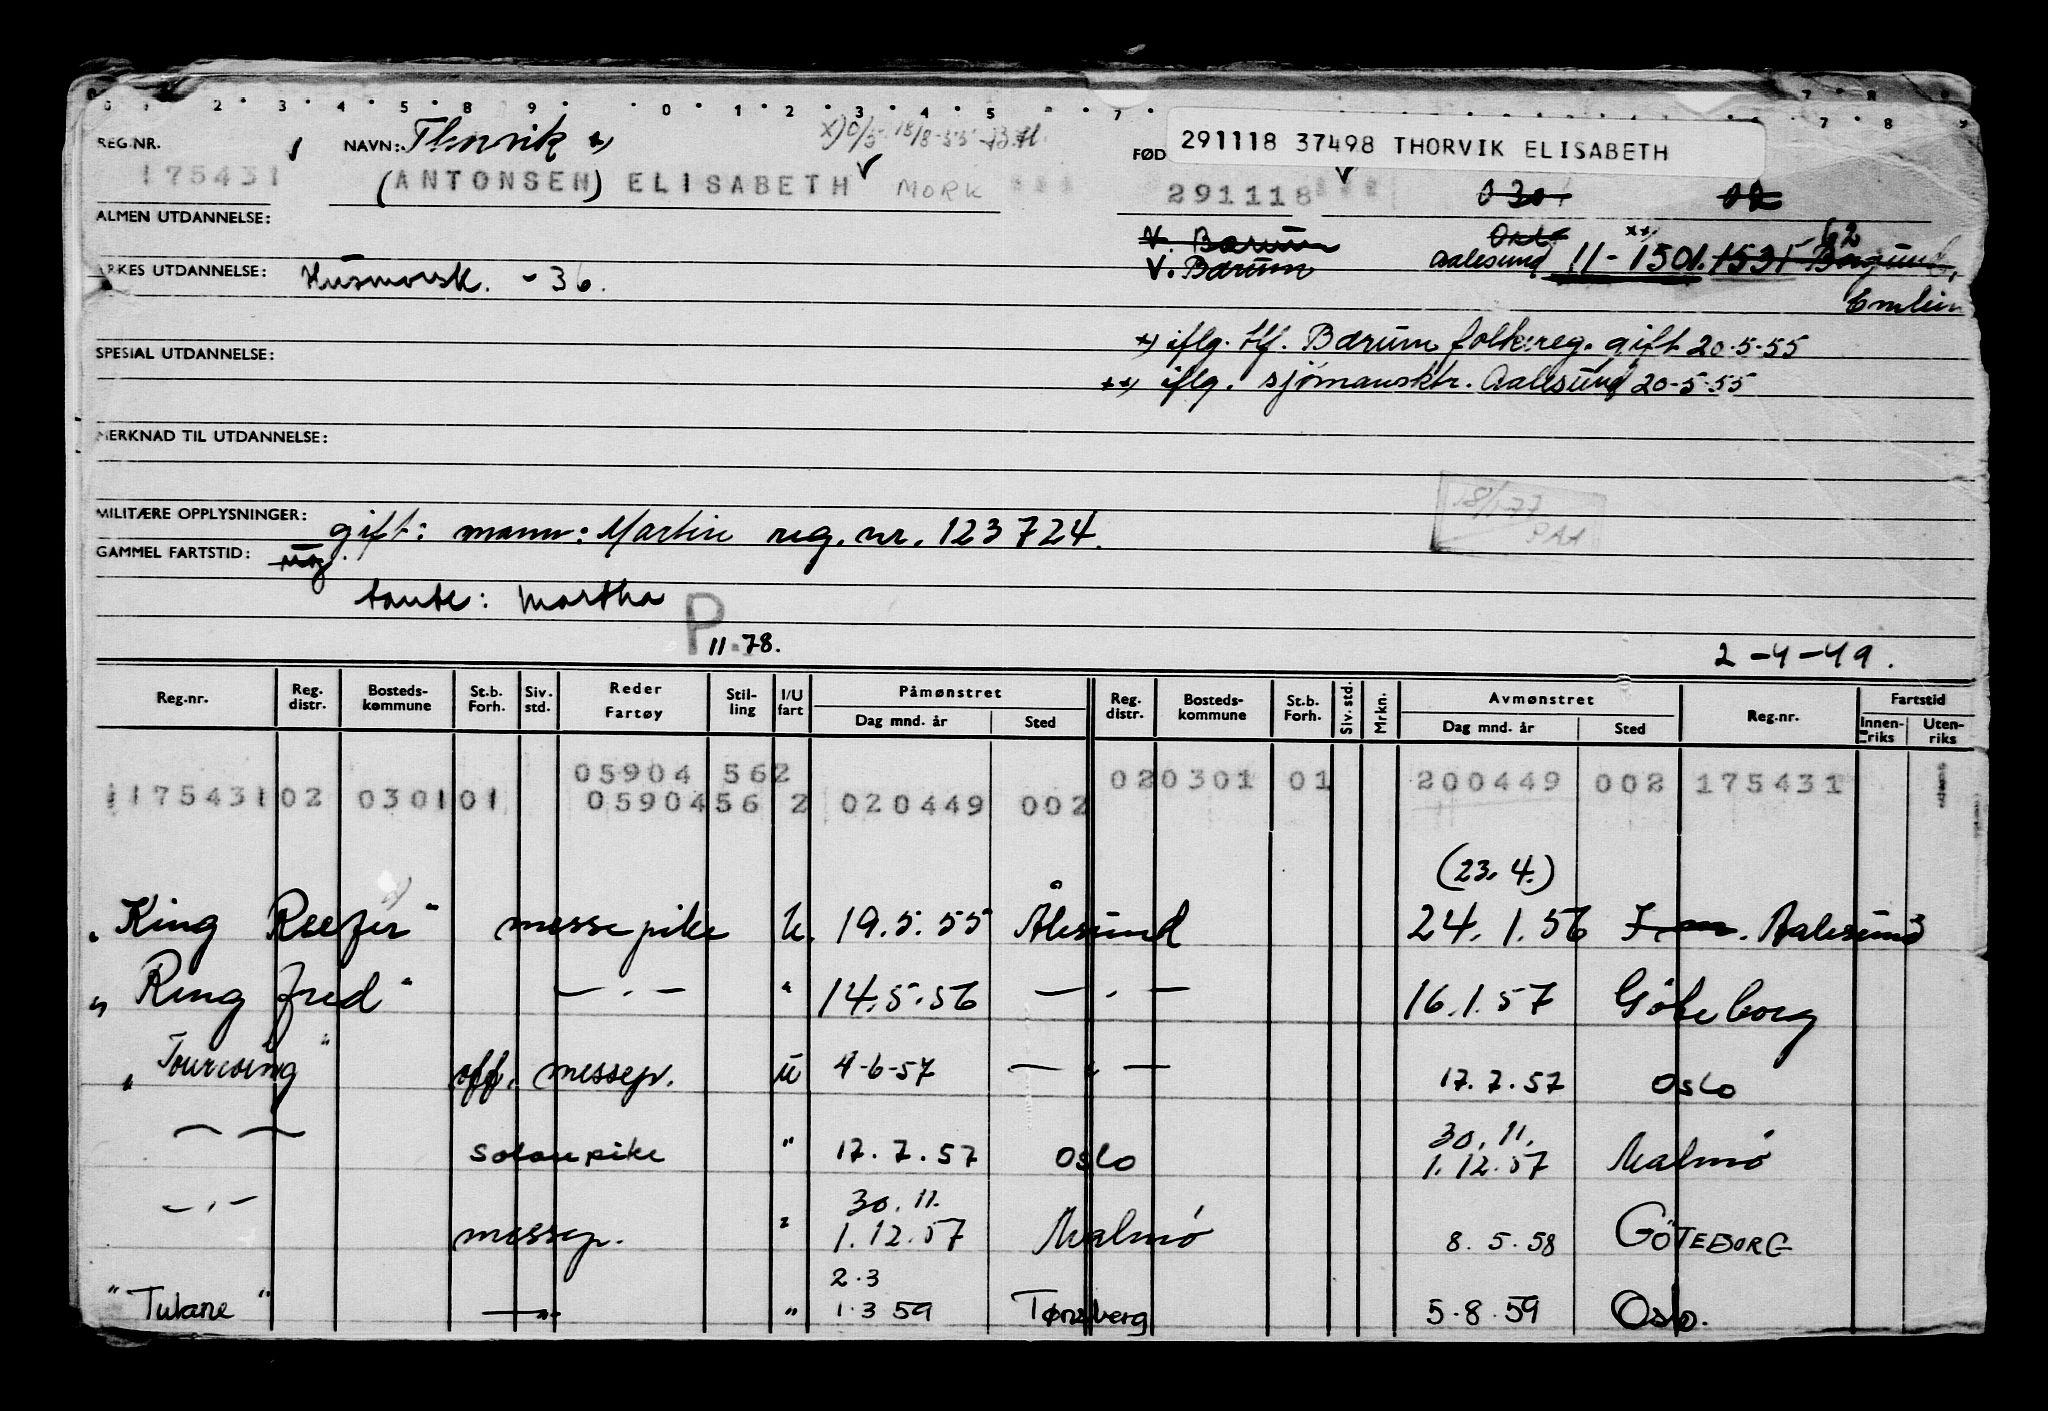 REG.NR. 175431
NAVN: Thorvik x)
291118 37498 THORVIK ELISABETH
FØD
(ANTONSEN) ELISABETH MORK
291118 030 02
ALMEN UTDANNELSE:
V. Bærum Oslo xx) 62
YRKES UTDANNELSE: Husmorsk. - 36.
V. Bærum Aalesund 11-1501. 1531 Borgund,
Emblem
x) iflg. tlf. Bærum folkereg. gift 20-5-55
SPESIAL UTDANNELSE:
xx) iflg. sjømannsktr. Aalesund 20-5-55
MERKNAD TIL UTDANNELSE:
18/1-77
PAA
MILITÆRE OPPLYSNINGER: gift: mann: Martin reg.nr. 123724.
GAMMEL FARTSTID:
tante: Martha
P 11.78.
2-4-49.
Reg.nr. Reg. distr. Bosteds- kommune St.b. Forh. Siv. std. Reder Fartøy Stil- ling I/U fart Påmønstret Dag mnd. år Sted Reg. distr. Bosteds- kommune St.b. Forh. Siv. std. Mrkn. Avmønstret Dag mnd. år Sted Reg.nr. Fartstid Innen- riks Uten- riks
05904 562 020301 01 200449 002 175431
175431 02 0301 01 05904 56 2 020449 002
(23. 4.)
"King Reefer" messepike u. 19.5.55 Ålesund 24.1.56 Aalesund
"Ringfred" — " — " 14.5.56 — " — 16.1.57 Göteborg
"Tourcoing" off. messep. u 4-6-57 — " — 17.7.57 Oslo
30.11.
— " — salonpike " 17.7.57 Oslo 1.12.57 Malmö
30.11.
— " — messep. " 1.12.57 Malmö 8.5.58 GÖTEBORG
2.3
"Tulane" — " — " 1.3 59 Tønsberg 5.8.59 Oslo.